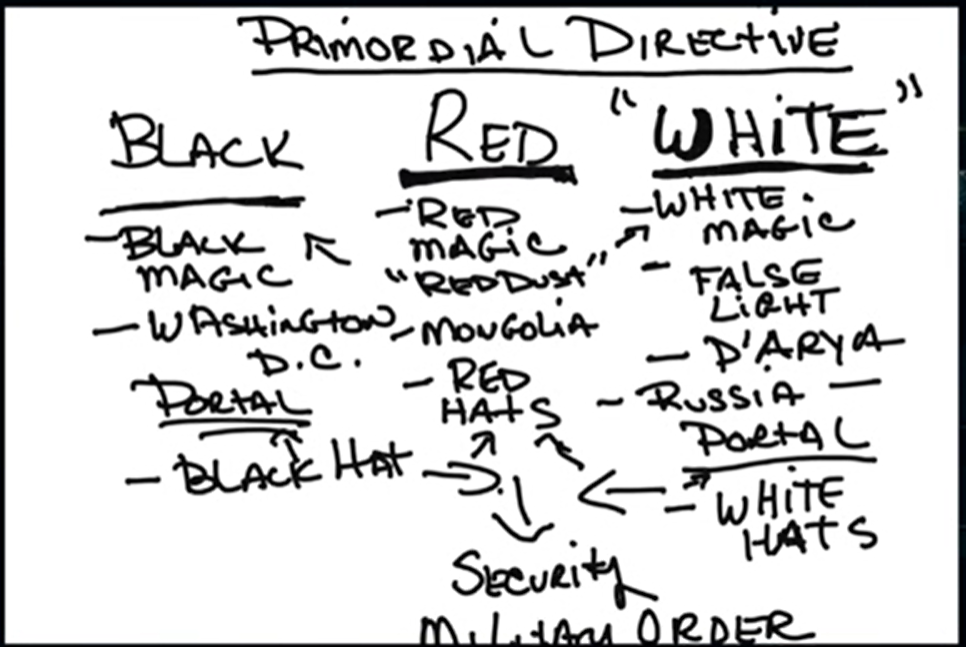 PRIMORDIAL DIRECTIVE
BLACK
- BLACK
MAGIC
- WASHINGTON
D.C.
PORTAL
- BLACK HAT
RED
- RED
MAGIC
"REDDUSA"
- MONGOLIA
- RED
HATS
"WHITE"
- WHITE
MAGIC
- FALSE
LIGHT
- D'ARYA
- RUSSIA -
PORTAL
- WHITE
HATS
SECURITY
MILITARY ORDER